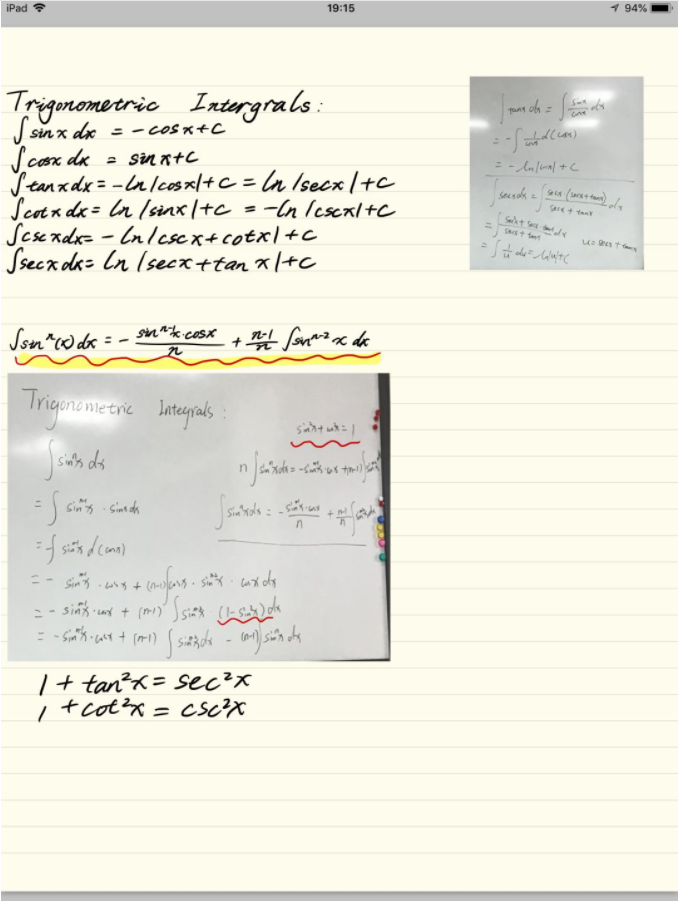 iPad 19:15 94%
Trigonometric Intergrals:
∫sinx dx = -cosx+C
∫cosx dx = sinx+C
∫tanx dx = -ln|cosx|+C = ln|secx|+C
∫cotx dx = ln|sinx|+C = -ln|cscx|+C
∫cscx dx = -ln|cscx+cotx|+C
∫secx dx = ln|secx+tanx|+C
∫tanx dx = ∫ sinx/cosx dx
= -∫ 1/cosx d(cosx)
= -ln|cosx| + C
∫secx dx = ∫ secx·(secx+tanx)/(secx+tanx) dx
= ∫ (sec²x + secx·tanx)/(secx+tanx) dx u = secx + tanx
= ∫ 1/u du = ln|u|+C
∫sinⁿ(x) dx = - sinⁿ⁻¹x·cosx/n + n-1/n ∫sinⁿ⁻²x dx
Trigonometric Integrals:
∫ sinⁿx dx
= ∫ sinⁿ⁻¹x · sinx dx
= -∫ sinⁿ⁻¹x d(cosx)
= - sinⁿ⁻¹x · cosx + (n-1)∫cosx · sinⁿ⁻²x · cosx dx
= - sinⁿ⁻¹x·cosx + (n-1) ∫ sinⁿ⁻²x · (1-sin²x) dx
= - sinⁿ⁻¹x·cosx + (n-1) ∫ sinⁿ⁻²x dx - (n-1)∫ sinⁿx dx
sin²x + cos²x = 1
n ∫sinⁿx dx = -sinⁿ⁻¹x·cosx + (n-1)∫sinⁿ⁻²x
∫sinⁿx dx = - sinⁿ⁻¹x·cosx/n + n-1/n ∫sinⁿ⁻²x dx
1 + tan²x = sec²x
1 + cot²x = csc²x